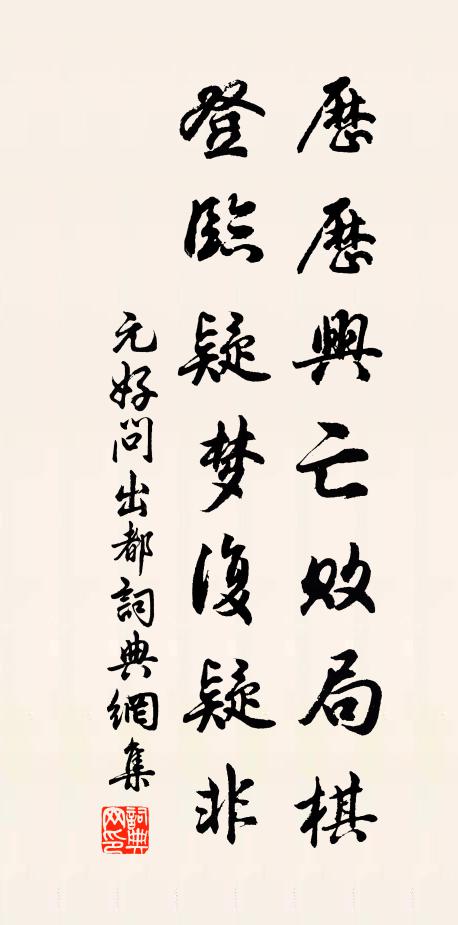 歷歷興亡敗局棋
登臨疑梦復疑非
元好問出都詞典網集
詞典網印